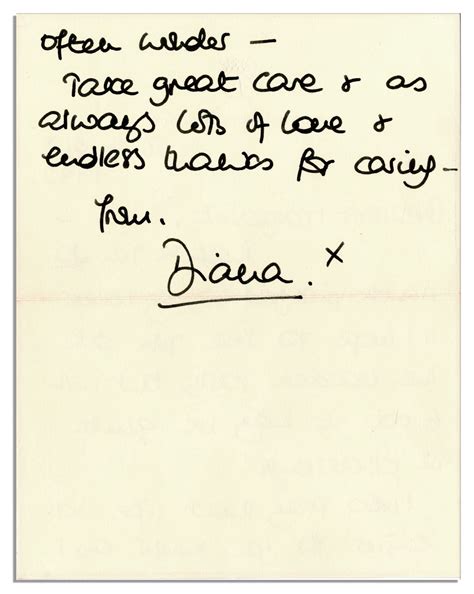 often wonder —
Take great care & as
always lots of love &
endless thanks for caring —
from.
Diana. x